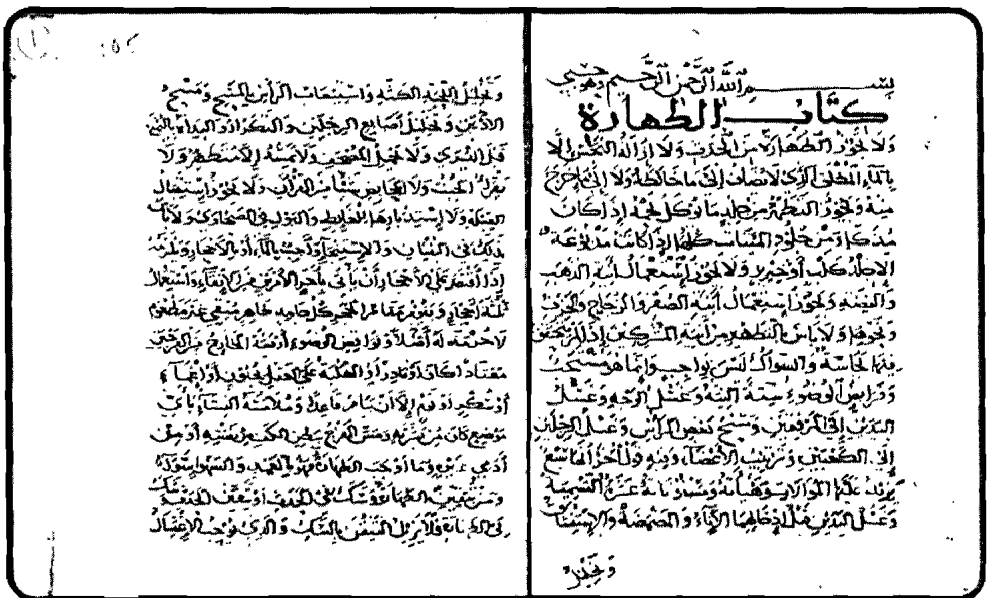 بسم الله الرحمن الرحيم وهو حسبي
كتاب الطهارة
ولا تجوز الطهارة من الحدث ولا إزالة النجس إلا
بالماء المطلق الذي لا يضاف إلى ما خالطه ولا إلى ما خرج
منه وتجوز الطهارة من جلد ما يوكل لحمه إذا كان
مذكا ومن جلود الميتات كلها إذا كانت مدبوغة
إلا جلد كلب أو خنزير ولا يجوز استعمال آنية الذهب
والفضة ويجوز استعمال آنية الصفر والزجاج والخزف
ونحوها ولا بأس بالتطهر من آنية المشركين إذا لم يتحقق
فيها نجاسة والسواك ليس بواجب وإنما هو مستحب
وفرايض الوضوء ستة النية وغسل الوجه وغسل
اليدين إلى المرفقين ومسح بعض الرأس وغسل الرجلين
إلى الكعبين وترتيب الأعضاء وفيه قول آخر أنها سبع
يزيد عليها الموالاة وهيأته ومسنوناته عشرة التسمية
وغسل اليدين قبل إدخالهما الإناء والمضمضة والاستنشاق
وتخليل
وتخليل اللحية الكثة واستيعاب الرأس بالمسح ومسح
الأذنين وتخليل أصابع الرجلين والتكرار والبداة باليمنى
قبل اليسرى ولا يحمل المصحف ولا يمسه إلا متطهر ولا
يقرأ الجنب ولا الحايض شيئا من القرآن ولا يجوز استقبال
القبلة ولا استدبارها للغايط والبول في الصحاري ولا بأس
بذلك في البنيان والاستنجا واجب بالماء أو بالأحجار ويلزمه
إذا اقتصر على الأحجار أن يأتي بآخر الأمرين من الإنقاء واستعمال
ثلثة أحجار ويقوم مقام الحجر كل جامد طاهر منقي غير مطعوم
لا حرمة له أصلا ونواقض الوضوء أربعة الخارج من الفرجين
معتادا كان أو نادرا والغلبة على العقل بجنون أو إغماء
أو سكر أو نوم إلا أن ينام قاعدا وملامسة النساء بأي
موضع كان من بشرته ومس الفرج ببطن الكف من نفسه أو من
آدمي غيره وما أوجب الطهارة فهو بالعمد والسهو سواء
ومن تيقن الطهارة وشك في الحدث أو تيقن الحدث وشك
في الطهارة فلا يزيل اليقين بالشك والذي يوجب الاغتسال